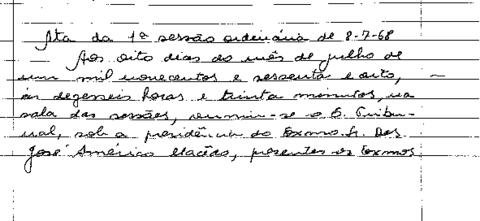 Ata da 1ª sessão ordinária de 8-7-68
Aos oito dias do mês de julho de
um mil novecentos e sessenta e oito,
às dezesseis horas e trinta minutos, na
sala das sessões, reuniu-se o E. Tribu-
nal, sob a presidência do Exmo. Sr. Des.
José Américo Macêdo, presentes os Exmos